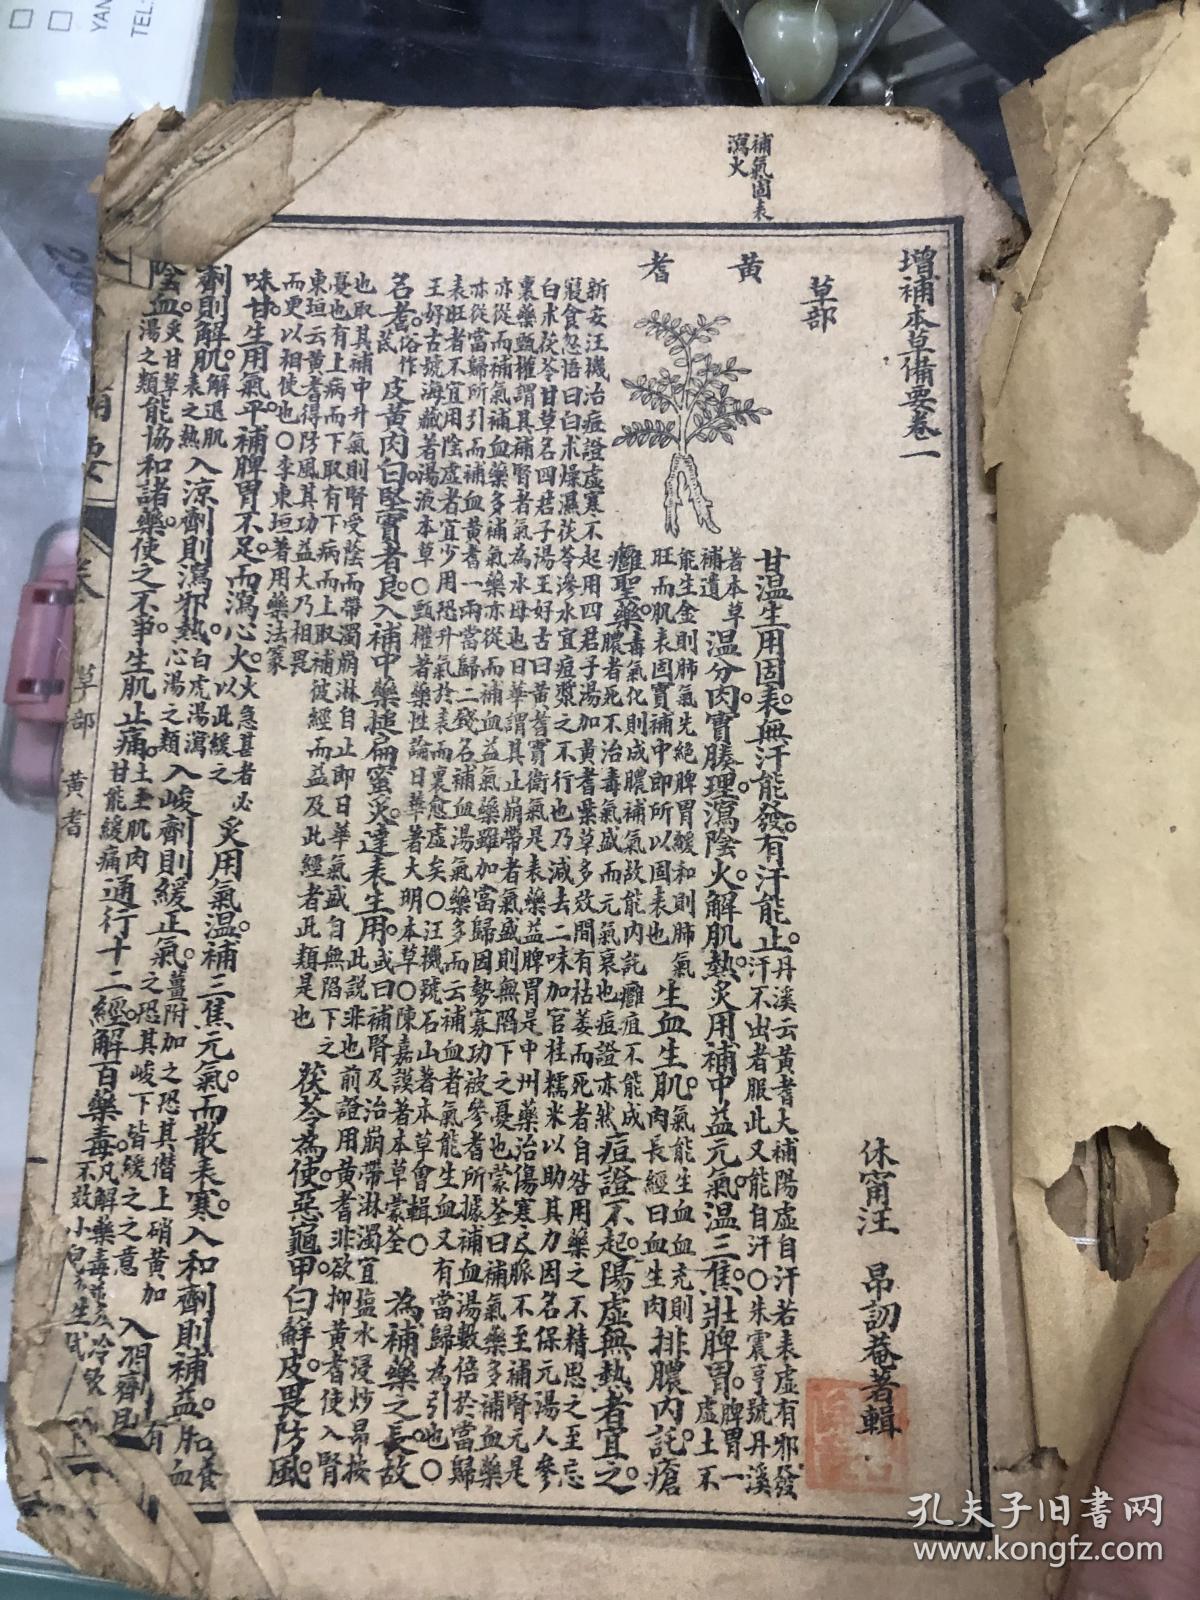 補氣固表
瀉火
增補本草備要卷一
休甯汪 昂訒菴著輯
草部
黃
耆
甘溫生用固表。無汗能發。有汗能止。丹溪云黃耆大補陽虛自汗若表虛有邪發
汗不出者服此又能自汗○朱震亨號丹溪
著本草
補遺
溫分肉實腠理瀉陰火。解肌熱。炙用補中益元氣。溫三焦。壯脾胃。脾胃一
虛土不
能生金則肺氣先絕脾胃緩和則肺氣
旺而肌表固實補中即所以固表也
生血生肌。氣能生血血充則
肉長經曰血生肉
排膿內託瘡
癰聖藥。毒氣化則成膿補氣故能內託癰疽不能成
膿者死不治毒氣盛而元氣衰也痘證亦然
痘證不起。陽虛無熱者宜之。
新安汪機治痘證虛寒不起用四君子湯加黃耆紫草多效間有枯萎而死者自咎用藥之不精思之至忘
寢食忽悟曰白朮燥濕茯苓滲水宜痘漿之不行也乃減去二味加官桂糯米以助其力因名保元湯人參
白朮茯苓甘草名四君子湯王好古曰黃耆實衛氣是表藥益脾胃是中州藥治傷寒尺脈不至補腎元是
裏藥甄權謂其補腎者氣為水母也日華謂其止崩帶者氣盛則無陷下之憂也蒙荃曰補氣藥多補血藥
亦從而補氣補血藥多補氣藥亦從而補血益氣藥雖加當歸因勢寡功被參耆所據補血湯數倍於當歸
亦從當歸所引而補血黃耆一兩當歸二錢名補血湯氣藥多而云補血者氣能生血又有當歸為引也○
表旺者不宜用陰虛者宜少用恐升氣於表而裏愈虛矣○汪機號石山著本草會輯○
王好古號海藏著湯液本草○甄權著藥性論日華著大明本草○陳嘉謨著本草蒙荃
為補藥之長故
名耆。俗作
芪
皮黃肉白堅實者良。入補中藥搥扁蜜炙。達表生用。或曰補腎及治崩帶淋濁宜鹽水浸炒昂按
此說非也前證用黃耆非欲抑黃耆使入腎
也取其補中升氣則腎受陰而帶濁崩淋自止即日華氣盛自無陷下之
憂也有上病而下取有下病而上取補彼經而益及此經者此類是也
茯苓為使。惡龜甲白鮮皮。畏防風。
東垣云黃耆得防風其功益大乃相畏
而更以相使也○李東垣著用藥法象
味甘。生用氣平。補脾胃不足。而瀉心火。火急甚者必
以此緩之
炙用氣溫。補三焦元氣。而散表寒。入和劑則補益。
劑則解肌。解退肌
表之熱
入涼劑則瀉邪熱。白虎湯瀉
心湯之類
入峻劑則緩正氣。薑附加之恐其僭上硝黃加
之恐其峻下皆緩之之意
入潤劑
陰血。炙甘草
湯之類
能協和諸藥。使之不爭。生肌止痛。土主肌肉
甘能緩痛
通行十二經。解百藥毒。凡解藥毒
卷
草部
黃耆
孔夫子旧书网
www.kongfz.com
YAN
TEL: